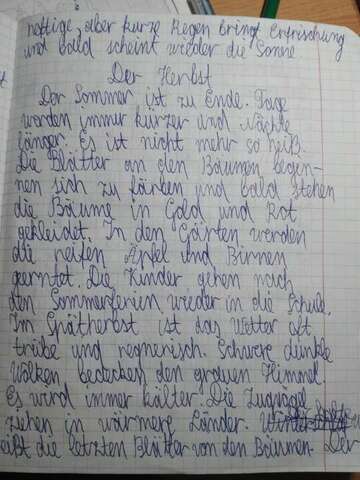 heftige, aber kurze Regen bringt Erfrischung
und bald scheint wieder die Sonne
Der Herbst
Der Sommer ist zu Ende. Tage
werden immer kurzer und Nächte
länger. Es ist nicht mehr so heiß.
Die Blätter an den Bäumen begin-
nen sich zu färben und bald stehen
die Bäume in Gold und Rot
gekleidet. In den Gärten werden
die reifen Äpfel und Birnen
gerntet. Die Kinder gehen nach
den Sommerferien wieder in die Schule.
Im Spätherbst ist das Wetter oft
trübe und regnerisch. Schwere dunkle
Wolken bedecken den grauen Himmel.
Es wird immer kälter. Die Zugvögel
ziehen in wärmere Länder.
eißt die letzten Blätter von den Bäumen. Der